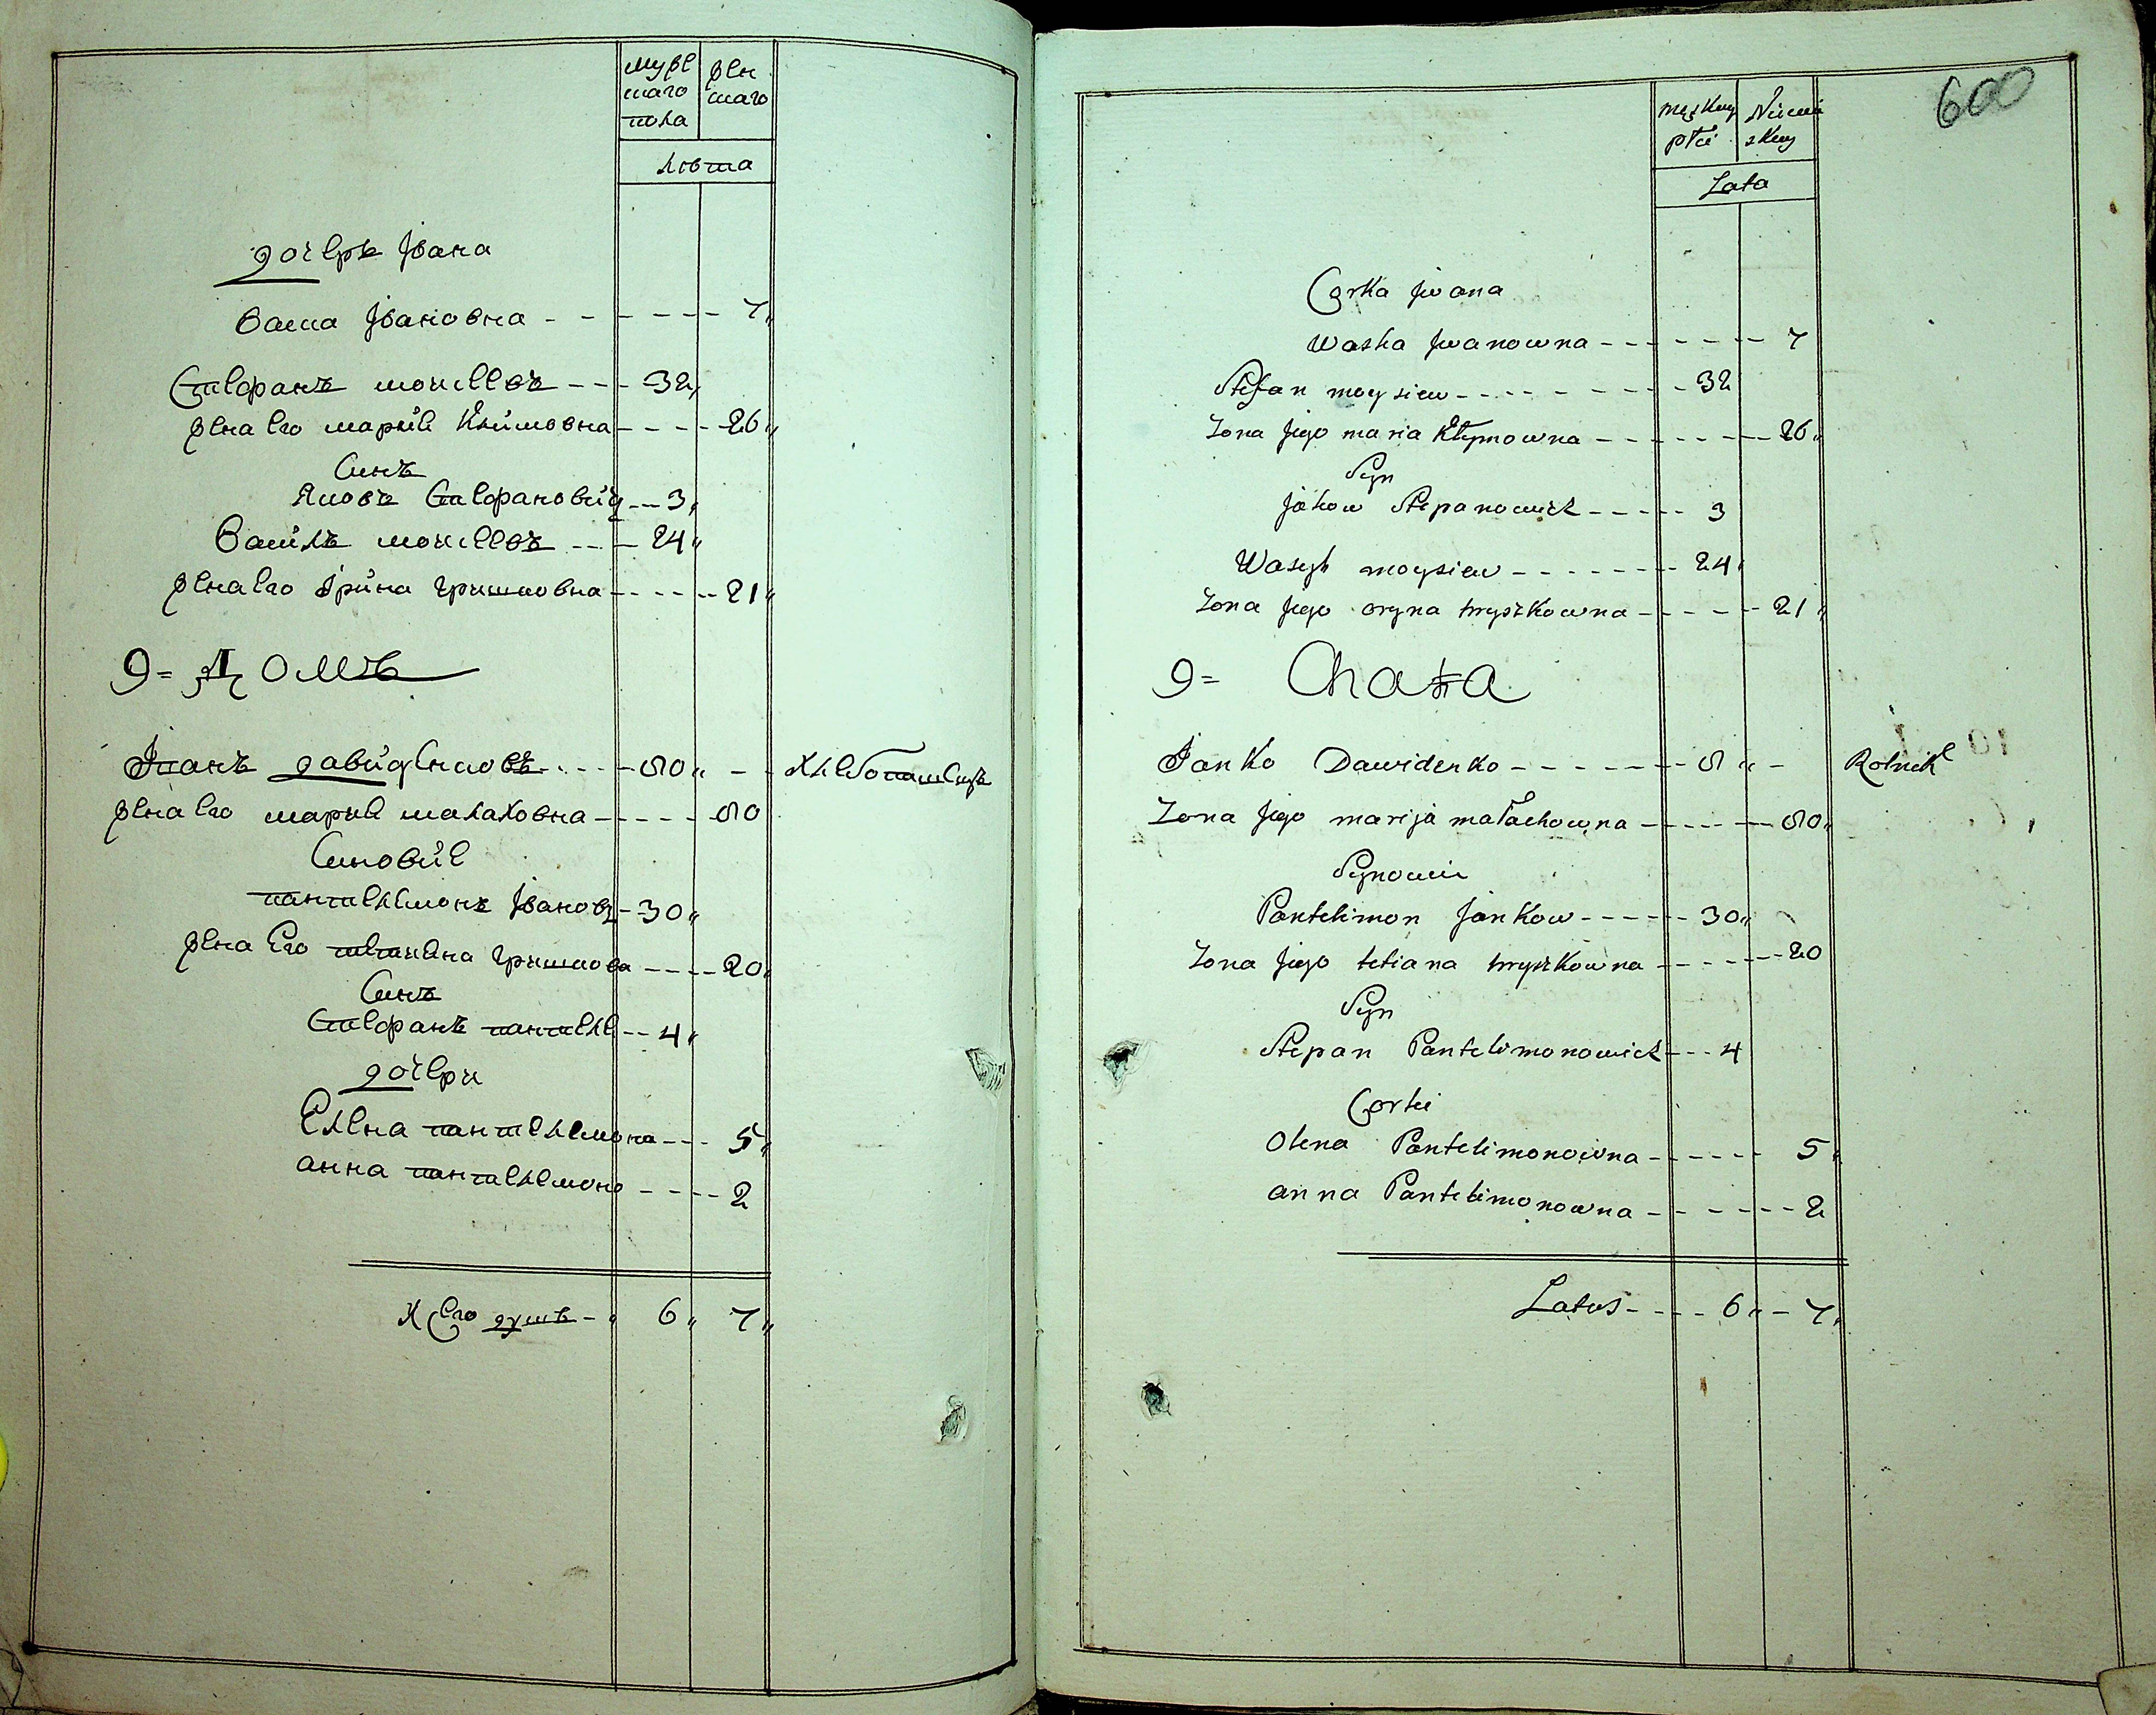 муже
скаго
пола
жен
скаго
лѣта
дочеръ Івана
Васка Івановна - - - - - - 7,,
Стефанъ моисеевъ - - - 32,
жена Его мария Климовна - - - - 26,,
Синъ
Яковъ Стефановичъ - - 3,
Василъ моисеевъ - - - 24,,
жена Его Ірина Гришковна - - - - - 21,,
9= Домъ
жена Его мария малаховна - - - - -
Синовие
пантелемонъ Івановъ - 30,,
жена Его тетияна Гришкова - - - - 20,
Синъ
Стефанъ пантеле - - 4,
дочери
Елена пантелемона - - - 5,,
анна пантелемоно - - - - 2
хлебопашецъ
Всего душъ - ,, 6,, 7,,
600
męskiey
płci
Niewie
skiey
Lata
Corka Jwana
Waska Jwanowna - - - - - - 7
Stefan moysiew - - - - - - - 32
Zona Jego maria Kłymowna - - - - - - 26,,
Syn
Jakow Stepanowicz - - - - - 3
Wasyl moysiew - - - - - - - 24,
Zona Jego oryna hryszkowna - - - - - 21,,
9= Chata
Janko Dawidenko - - - - - - Rolnik
Zona Jego marija małachowna - - - - -
Synowie
Pantelimon Jankow - - - - - 30,,
Zona Jego tetiana hryszkowna - - - - - 20
Syn
Stepan Pantelimonowicz - - - 4
Corki
Olena Pantelimonowna - - - - - 5,
anna Pantelimonowna - - - - - - 2
Latus - - - - 6,, - 7,